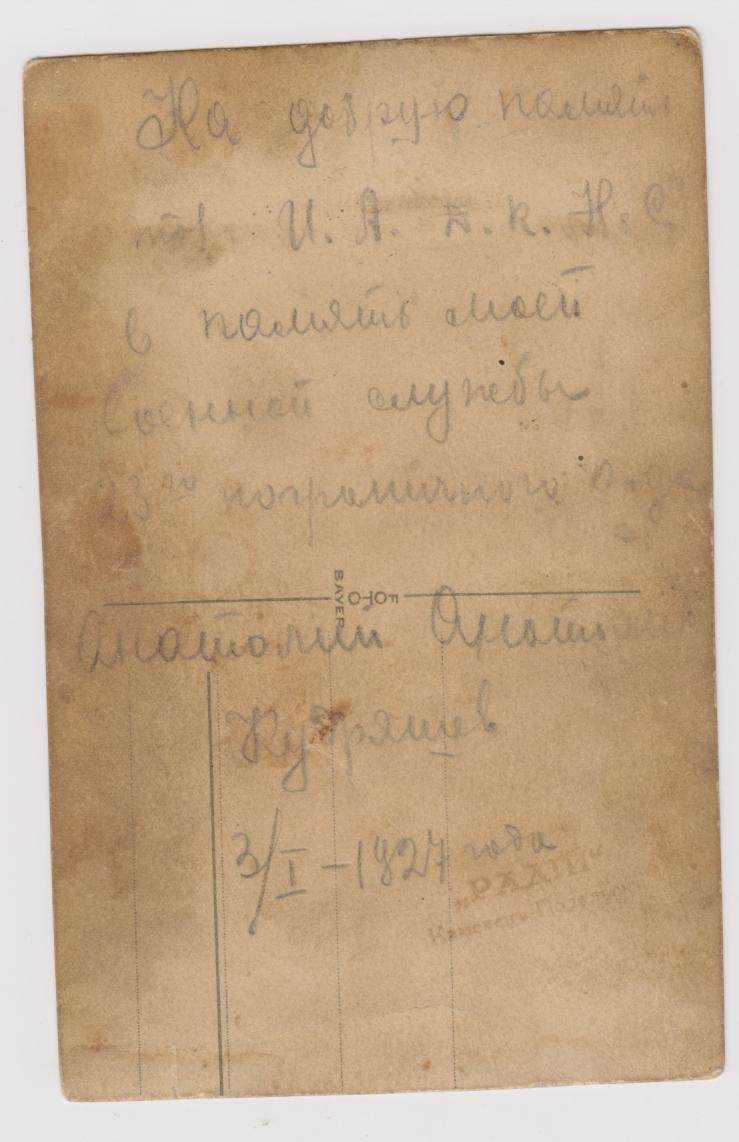 На добрую память
И. А. К. Н. С
в память моей
военной службы
23го пограничного
BAYER FOTO
Анатолий
Кудряшев
3/I – 1927 года
„РАДІЙ“
Каменець-Подільськ